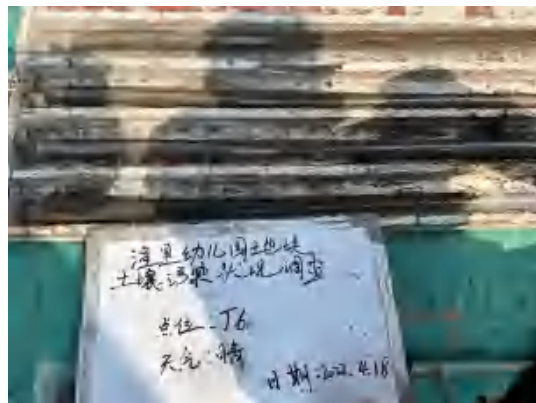 幼儿园地块
土壤污染状况调查
点位:J6
天气:晴
日期:2022.4.18